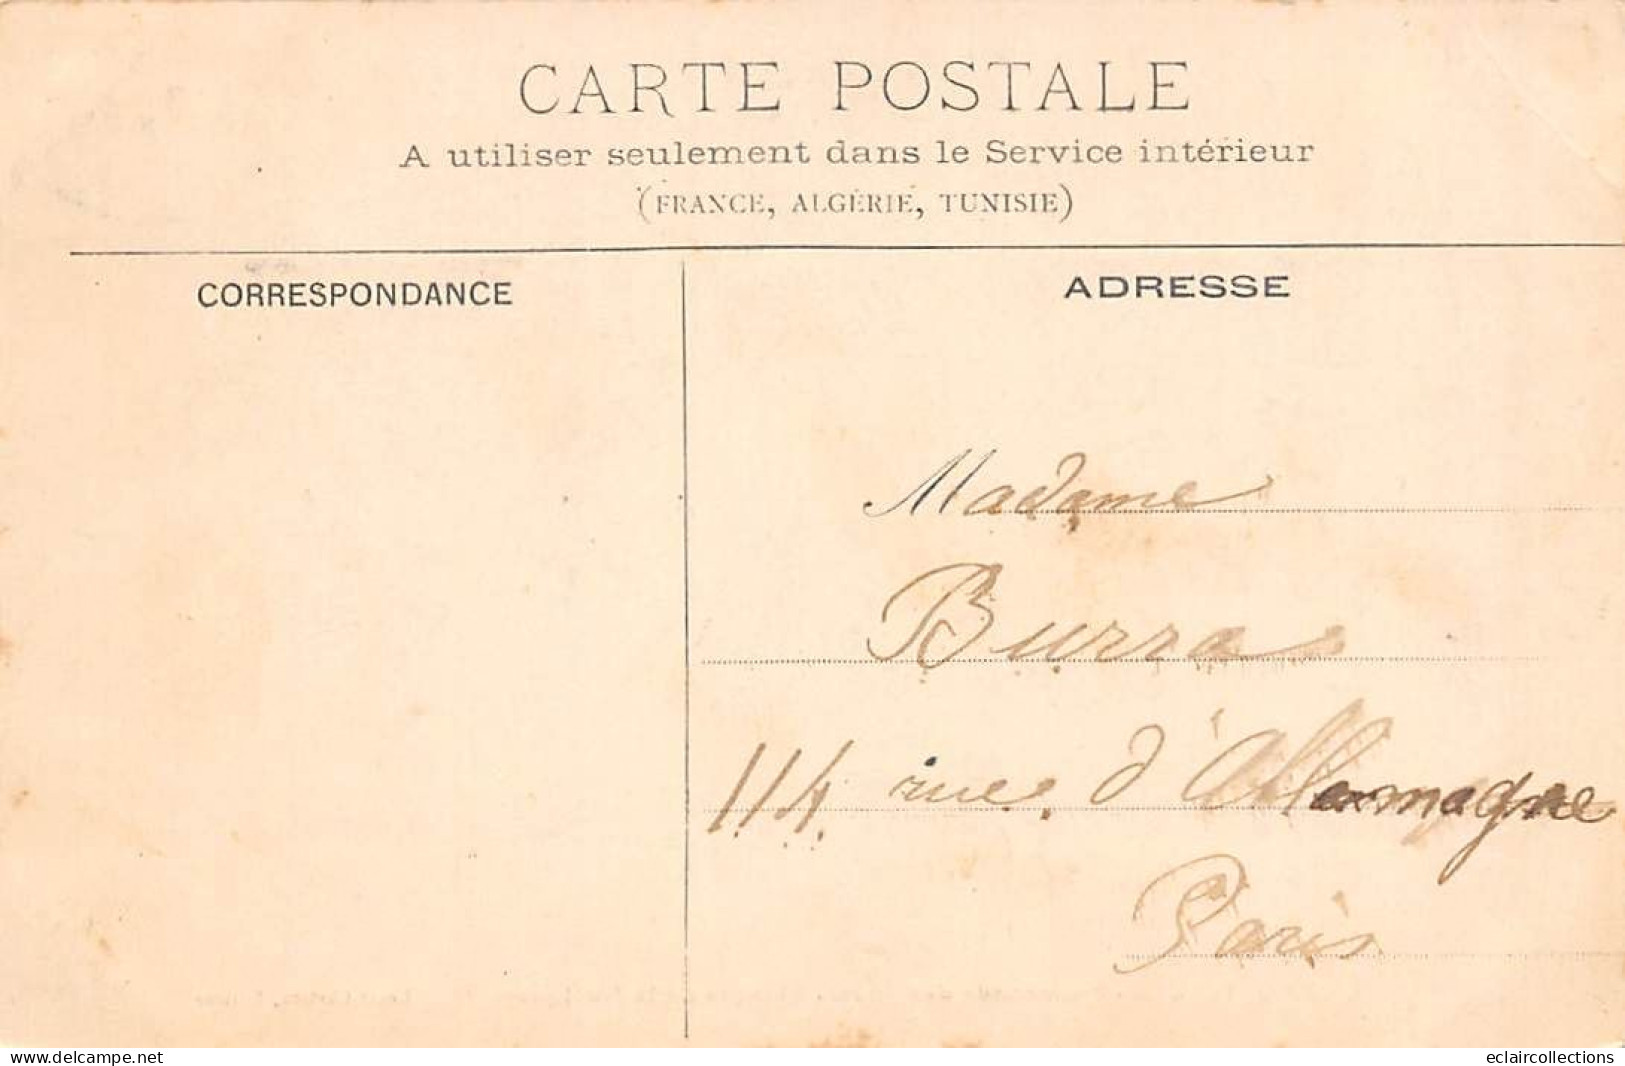 CARTE POSTALE
A utiliser seulement dans le Service intérieur
(FRANCE, ALGÉRIE, TUNISIE)
CORRESPONDANCE
ADRESSE
Madame
Burras
114 rue d'Allemagne
Paris
www.delcampe.net
eclaircollections